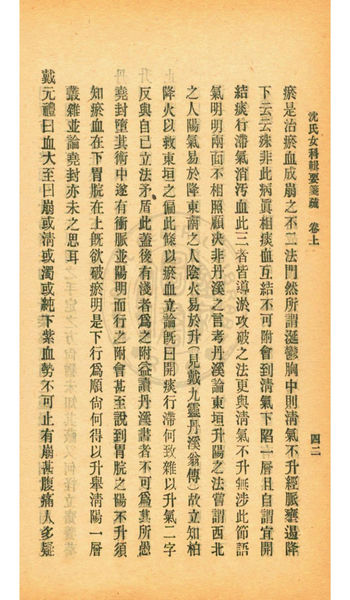 沈氏女科輯要箋疏 卷上 四二
瘀是治瘀血成崩之不二法門然所謂涎鬱胸中則淸氣不升經脈壅遏降
下云云殊非此病眞相痰血互結不可附會到淸氣下陷一層且自謂宜開
結痰行滯氣消汚血此三者皆導淤攻破之法更與淸氣不升無涉此節語
氣明明兩面不相照顧決非丹溪之言考丹溪論東垣升陽之法嘗謂西北
之人陽氣易於降東南之人陰火易於升(見戴九靈丹溪翁傳)故立知柏
降火以救東垣之偏此條以瘀血立論旣曰開痰行滯何致雜以升氣二字
反與自己立法矛盾此蓋後有淺者爲之附益讀丹溪書者不可爲其所愚
堯封墮其術中遂有衝脈並陽明而行之附會甚至說到胃脘之陽不升須
知瘀血在下胃脘在上旣欲破瘀明是下行爲順尙何得以升舉淸陽一層
叢雜並論堯封亦未之思耳
戴元禮曰血大至曰崩或淸或濁或純下紫血勢不可止有崩甚腹痛人多疑